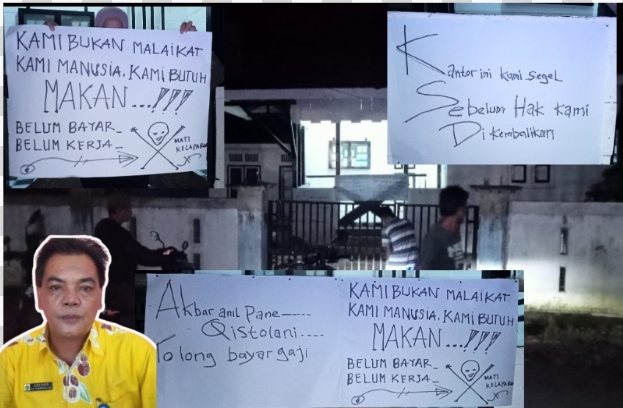 KAMI BUKAN MALAIKAT
KAMI MANUSIA. KAMI BUTUH
MAKAN...!!!
BELUM BAYAR_
BELUM KERJA_
MATI
KELAPARAN
Kantor ini kami segel
Sebelum Hak kami
Di kembalikan
Akbar anil Pane----
Qistolani----
Tolong bayar gaji
KAMI BUKAN MALAIKAT
KAMI MANUSIA. KAMI BUTUH
MAKAN...!!!
BELUM BAYAR_
BELUM KERJA_
MATI
KELAPARAN